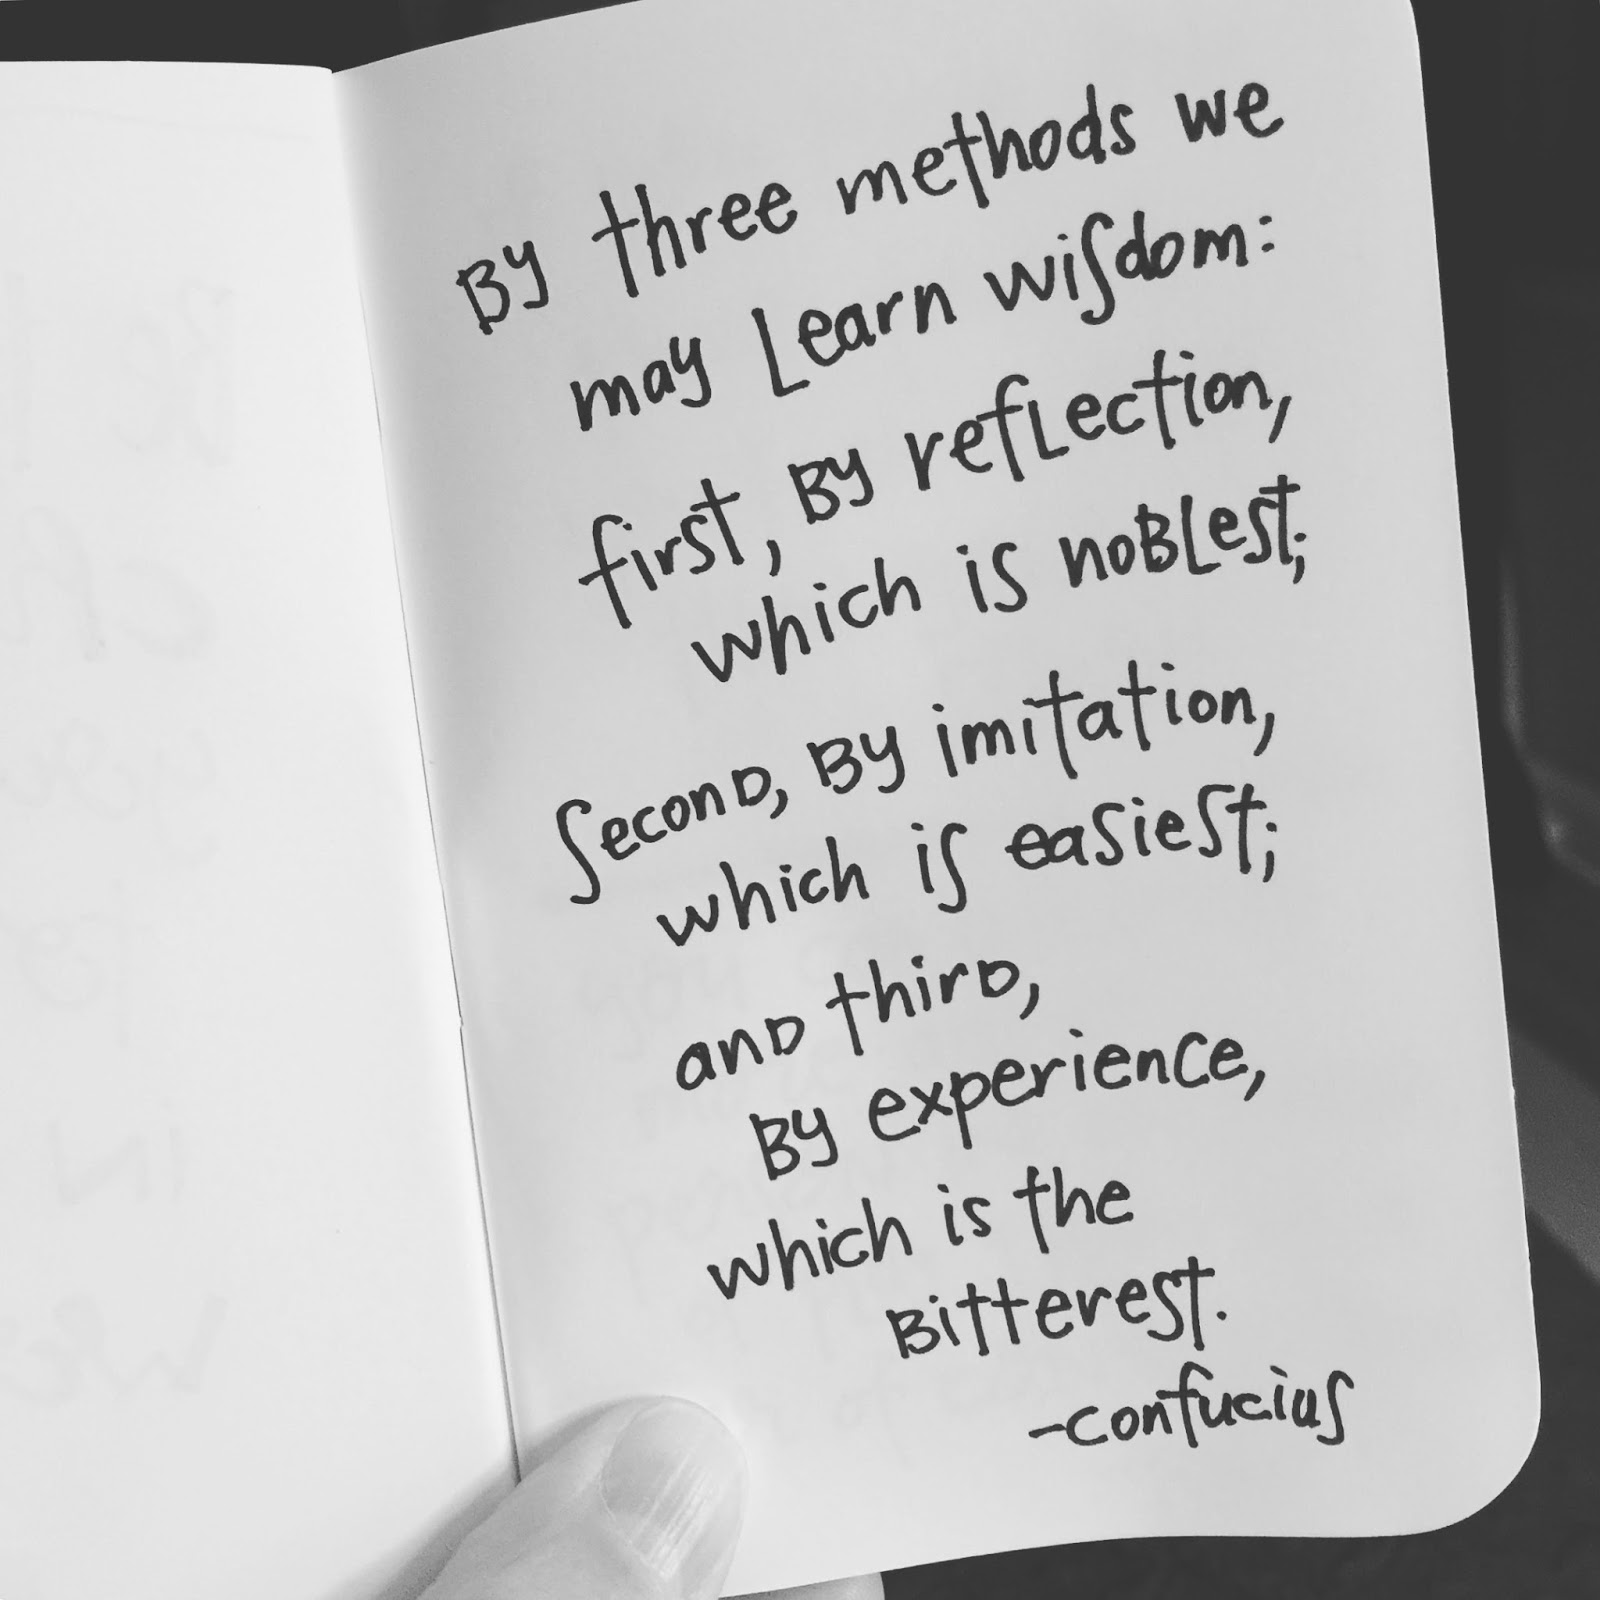 By three methods we
may Learn wisdom:
first, By refLection,
which is noBLest;
SeconD, By imitation,
which is easiest;
anD thirD,
By experience,
which is the
Bitterest.
-confucius